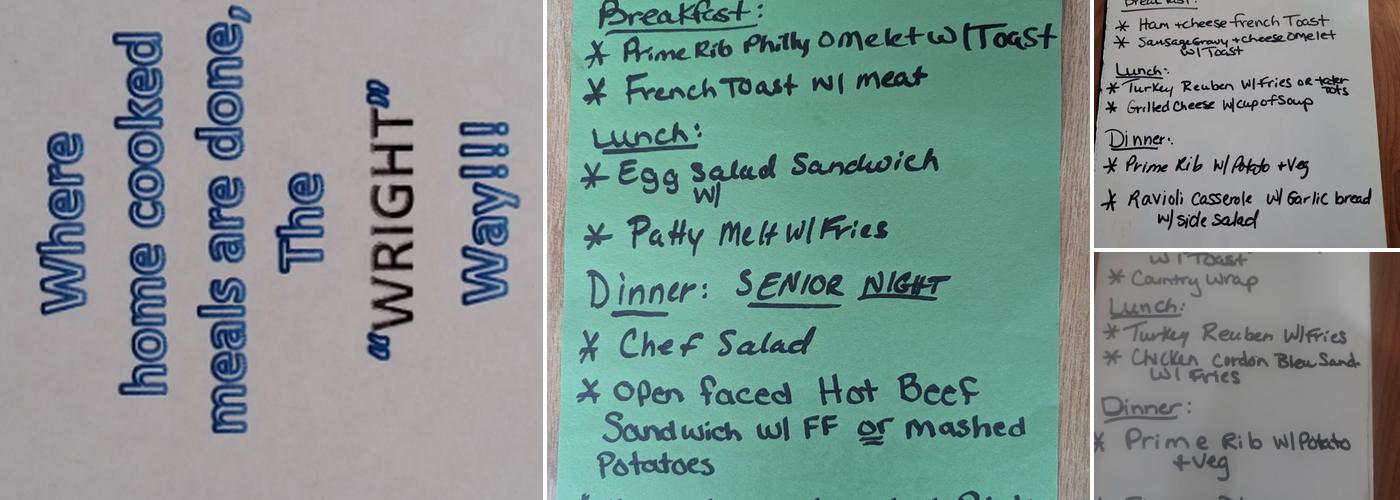 Where
home cooked
meals are done,
The
“WRIGHT”
Way!!!
Breakfast:
* Prime Rib Philly Omelet w/Toast
* French Toast w/ meat
Lunch:
* Egg Salad Sandwich
w/
* Patty Melt w/Fries
Dinner: SENIOR NIGHT
* Chef Salad
* Open faced Hot Beef
Sandwich w/ FF or mashed
Potatoes
Breakfast:
* Ham + cheese french Toast
* Sausage Gravy + cheese omelet
w/ Toast
Lunch:
* Turkey Reuben w/Fries or tater
tots
* Grilled Cheese w/cup of Soup
Dinner:
* Prime Rib w/ Potato + Veg
* Ravioli Casserole w/ Garlic bread
w/ side salad
w/ Toast
* Country Wrap
Lunch:
* Turkey Reuben w/Fries
* Chicken Cordon Bleu Sand.
w/ Fries
Dinner:
* Prime Rib w/Potato
+ Veg